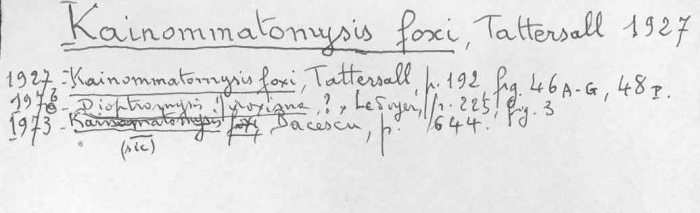 Kainommatomysis foxi, Tattersall 1927
1927 - Kainommatomysis foxi, Tattersall, p. 192, fig. 46 A-G, 48 P.
1973 - Dioptromysis proxigua, ?, Ledoyer, p. 225, fig. 3
1973 - Kainommatomysis foxi, Bacescu, p. 644.
(sic)